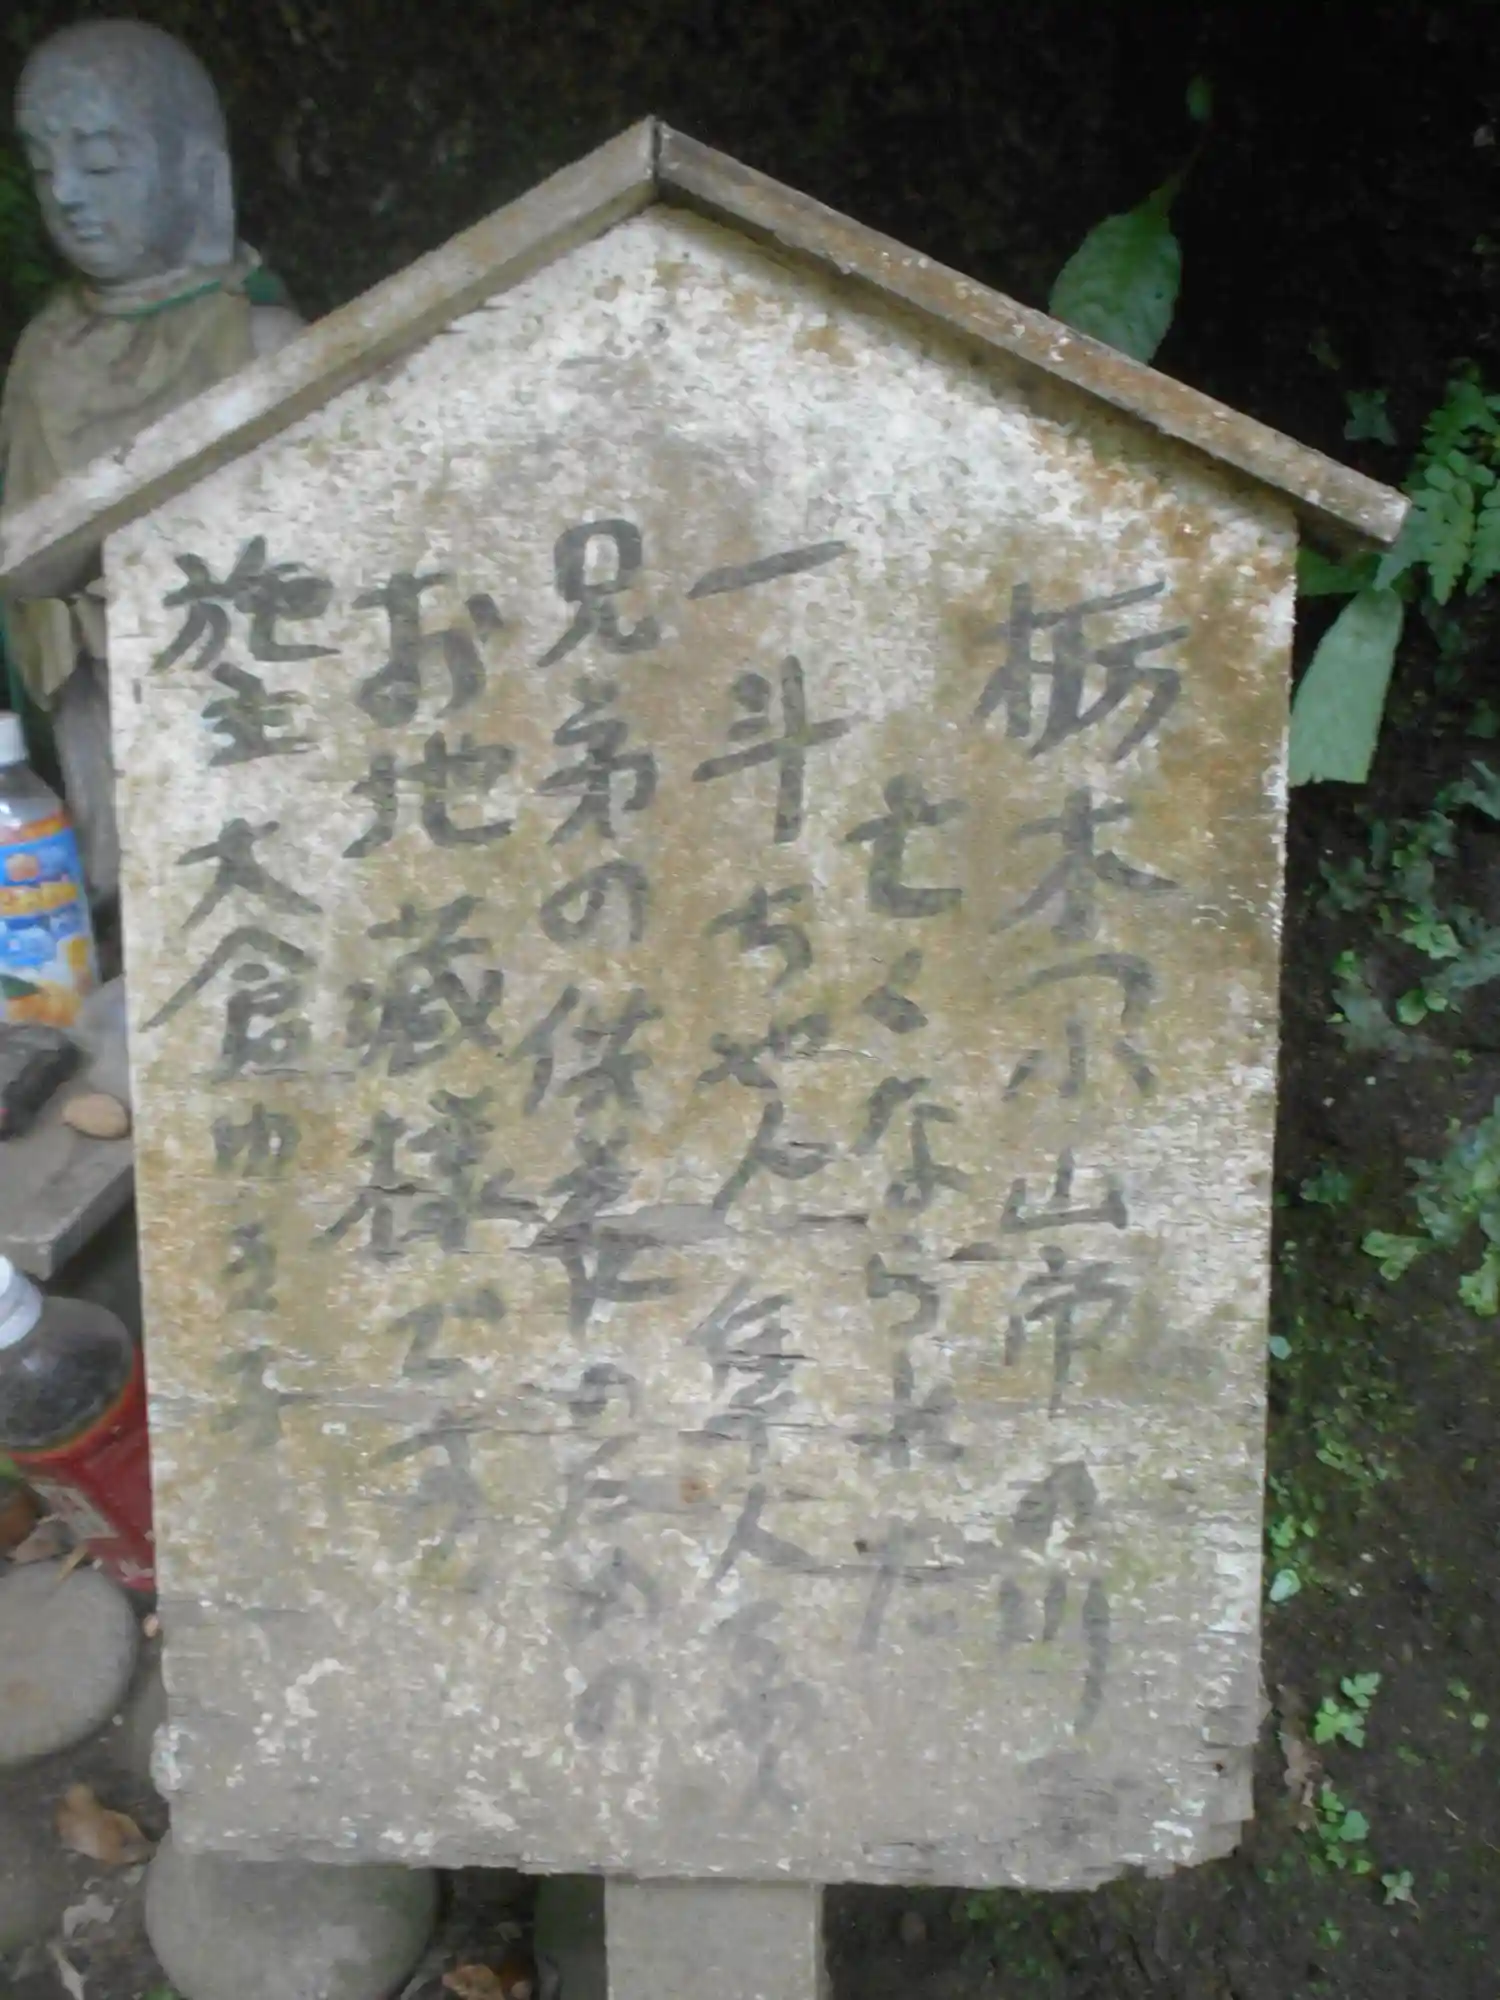 栃木小山市 思川
亡くなられた
一斗ちゃん 隼人ちゃん
兄弟の供養のための
お地蔵様です
施主 大倉ゆき子